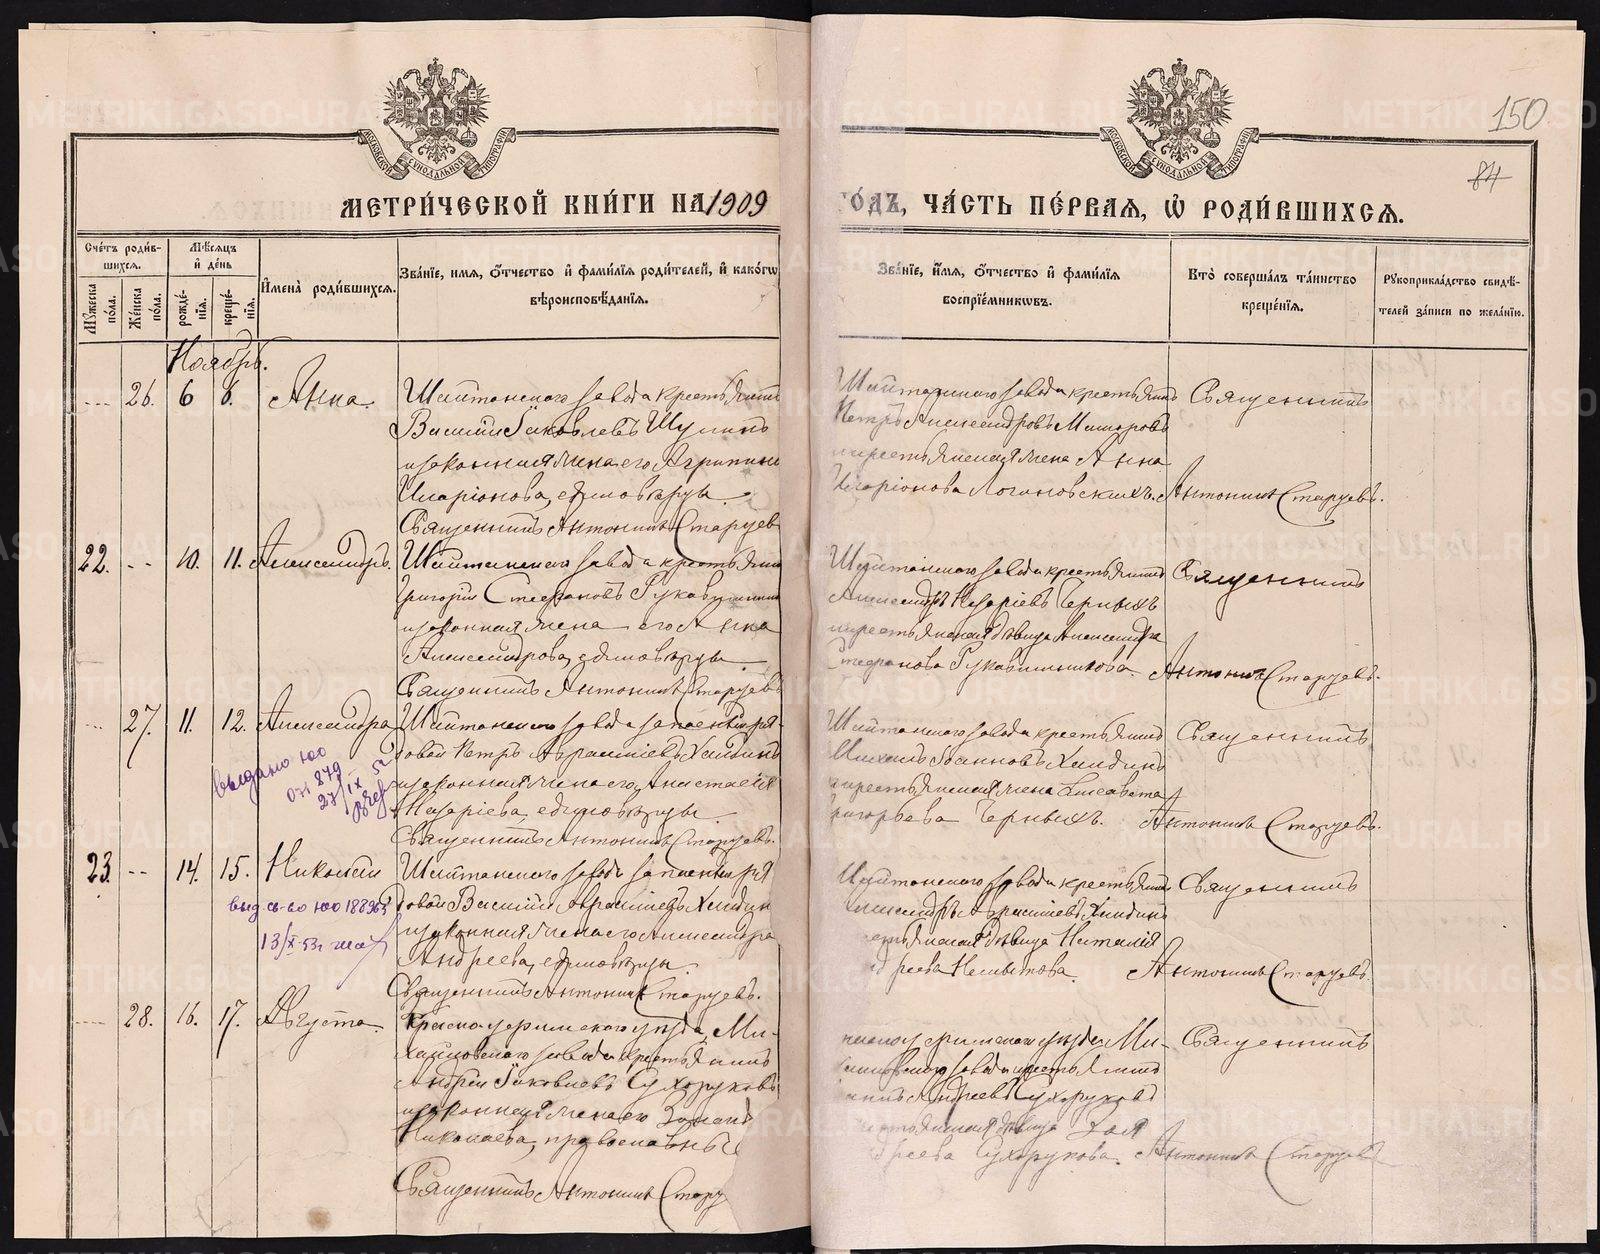 150
84
МОСКОВСКОЙ СѴНОДАЛЬНОЙ ТИПОГРАФІИ
МОСКОВСКОЙ СѴНОДАЛЬНОЙ ТИПОГРАФІИ
МЕТРИ́ЧЕСКОЙ КНИ́ГИ НА 1909
ГО́ДЪ, ЧА́СТЬ ПЕ́РВАЯ, Ѡ РОДИ́ВШИХСЯ.
Сче́тъ роди́в-
шихся.
Мѣ́сяцъ
и́ де́нь
Мꙋжеска по́ла.
Же́нска по́ла.
рожде́-
нїя.
креще́-
нїя.
И҆мена̀ роди́вшихся.
Зва́нїе, имя, ѻ҆́тчество и҆ фами́лїя роди́телей, и҆ како́гѡ
вѣроисповѣ́данїя.
Зва́нїе, и҆́мя, ѻ҆́тчество и҆ фами́лїя
воспрїе́мникѡвъ.
Кто̀ соверша́лъ та́инство
креще́нїя.
Рꙋкоприкла́дство свидѣ́-
телей за́писи по жела́нїю.
Ноябрь.
26. 6 8. Анна.
Шайтанскаго завода крестьянинъ
Василій Іаковлевъ Шулинъ
и законная жена его Агрипина
Иларіонова, единовѣрцы.
Священникъ Антонинъ Старцев
Шайтанскаго завода крестьянин
Петръ Александровъ
и крестьянская жена Анна
Иларіонова Логиновскихъ.
Священникъ
Антонинъ Старцевъ.
22. -- 10. 11. Александръ.
Шайтанскаго завода крестьянин
Григорій Стефановъ Рукавишник
и законная жена его Анна
Александрова, единовѣрцы.
Священникъ Антонинъ Старцевъ
Шайтанскаго завода крестьянинъ
Александръ Назаріевъ Черныхъ
и крестьянская дѣвица Александра
Стефанова Рукавишникова.
Священникъ
Антонинъ Старцевъ.
27. 11. 12. Александра
выдано
27/IX 52
Шайтанскаго завода запасный ря-
довой Петръ Аѳанасіевъ
и законная жена его Анастасія
Назаріева, единовѣрцы.
Священникъ Антонинъ Старцевъ.
Шайтанскаго завода крестьянинъ
Михаилъ Іоанновъ
и крестьянская жена Елисавета
Григорьева Черныхъ.
Священникъ
Антонинъ Старцевъ.
23. -- 14. 15. Николай
выд св-во
13/X-53г
Шайтанскаго завода запасный ря
довой Василій Аѳанасіевъ
и законная жена его Александра
Андреева, единовѣрцы.
Священникъ Антонинъ Старцевъ.
Шайтанскаго завода крестьянин
Александръ Аѳанасіевъ
дѣвица Наталія
Священникъ
Антонинъ Старцевъ.
28. 16. 17. Августа.
Красноуфимскаго уѣзда, Ми-
хайловскаго завода крестьянинъ
Андрей Іаковлевъ Сухоруковъ
и законная жена его
Николаева, православны
Священникъ Антонинъ Старц
уфимскаго уѣзда Ми-
хайловскаго завода крестьянинъ
Андреевъ Сухоруковъ
дѣвица Зоя
Андреева Сухорукова.
Священникъ
Антонинъ Старцевъ